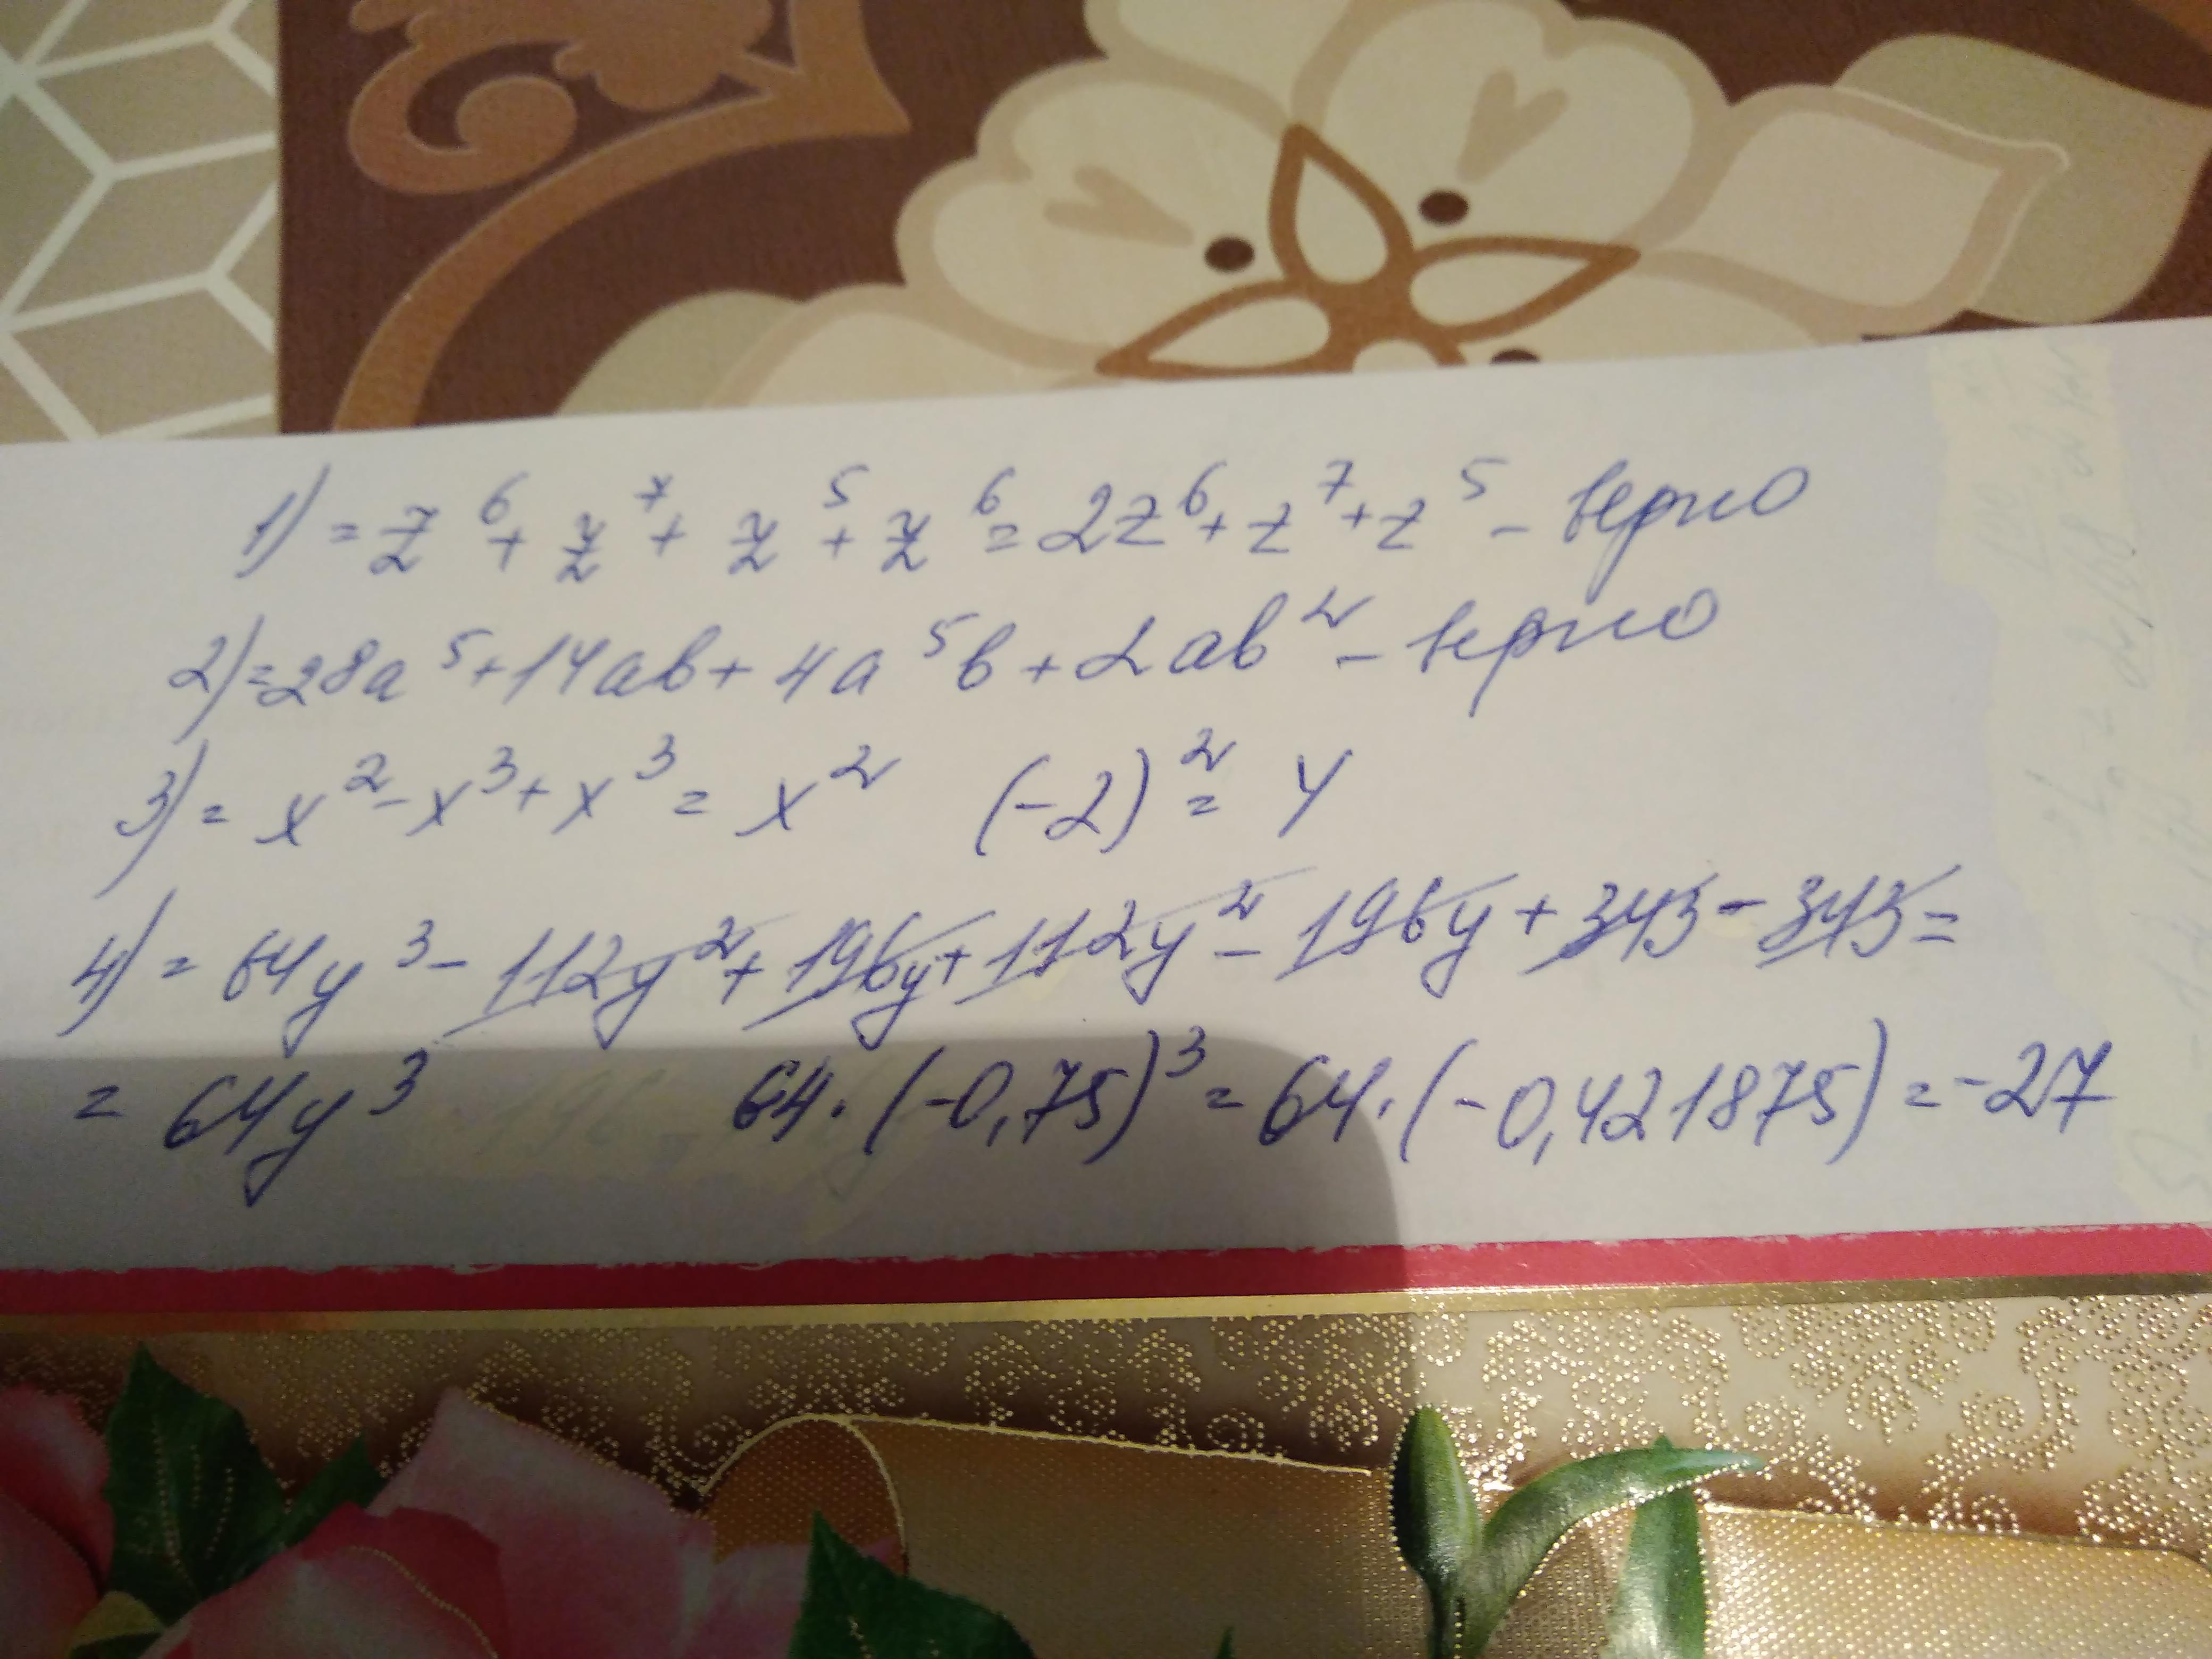 1) = z⁶ + z⁷ + z⁵ + z⁶ = 2z⁶ + z⁷ + z⁵ - верно
2) = 28a⁵ + 14ab + 4a⁵b + 2ab² - верно
3) = x² - x³ + x³ = x² (-2)² = 4
4) = 64y³ - 112y² + 196y + 112y² - 196y + 343 - 343 =
= 64y³ 64·(-0,75)³ = 64·(-0,421875) = -27